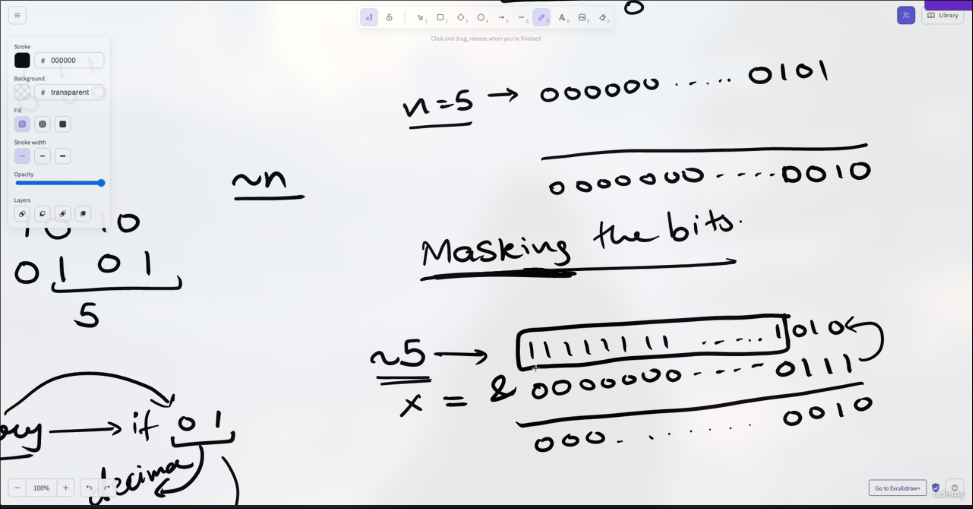 Library
Click and drag, release when you're finished
Stroke
# 000000
Background
# transparent
Fill
Stroke width
Opacity
Layers
n=5 → 000000 ..... 0101
0000000 ----- 0010
~n
Masking the bits.
0101
5
~5 → 11111111 ..... 1010
x = & 0000000 ----- 0111
000. . ...... 0010
→ if 01
decima
100%
Go to Excalidraw+
udemy